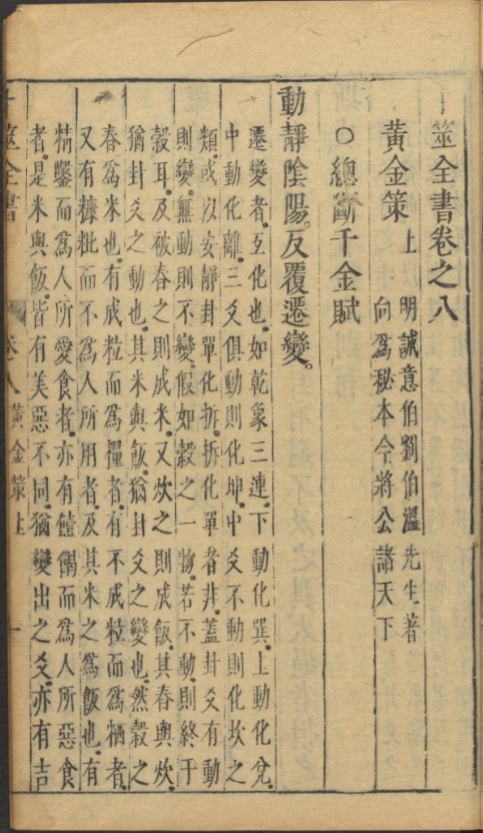 卜筮全書卷之八
黃金策上
明誠意伯劉伯溫先生著
向爲秘本今將公諸天下
○總斷千金賦
動靜陰陽。反覆遷變。
遷變者。互化也。如乾象三連。下動化巽。上動化兌。
中動化離。三爻俱動則化坤。中爻不動則化坎之
類。或以安靜卦單化拆。拆化單者。非。蓋卦爻有動
則變。無動則不變。假如穀之一物。若不動。則終于
穀耳。及被舂之則成米。又炊之則成飯。其舂與炊。
猶卦爻之動也。其米與飯。猶卦爻之變也。然穀之
舂爲米也。有成粒而爲糧者。有不成粒而爲粞者。
又有糠粃而不爲人所用者。及其米之爲飯也。有
精鑿而爲人所愛食者。亦有饐餲而爲人所惡食
者。是米與飯。皆有美惡不同。猶變出之爻。亦有吉
卜筮全書 卷八 黃金策上 一